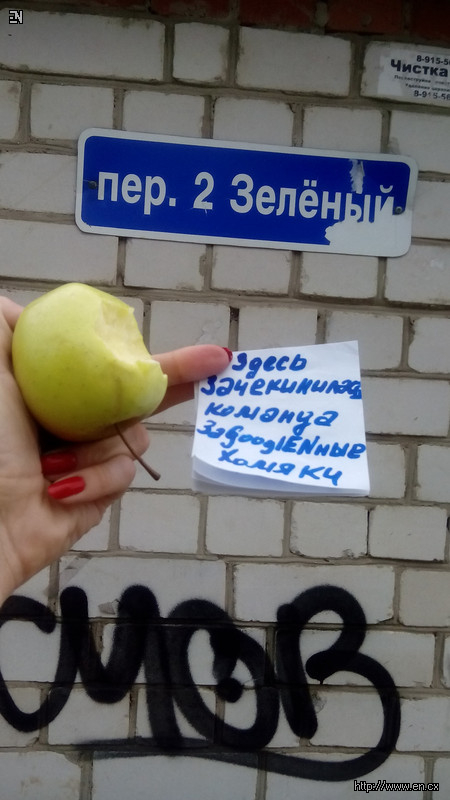 EN
8-915-5
Чистка
8-915-56
пер. 2 Зелёный
Здесь
зачекинилась
команда
ЗаводоlENные
Хомяки
смов
http://www.en.cx